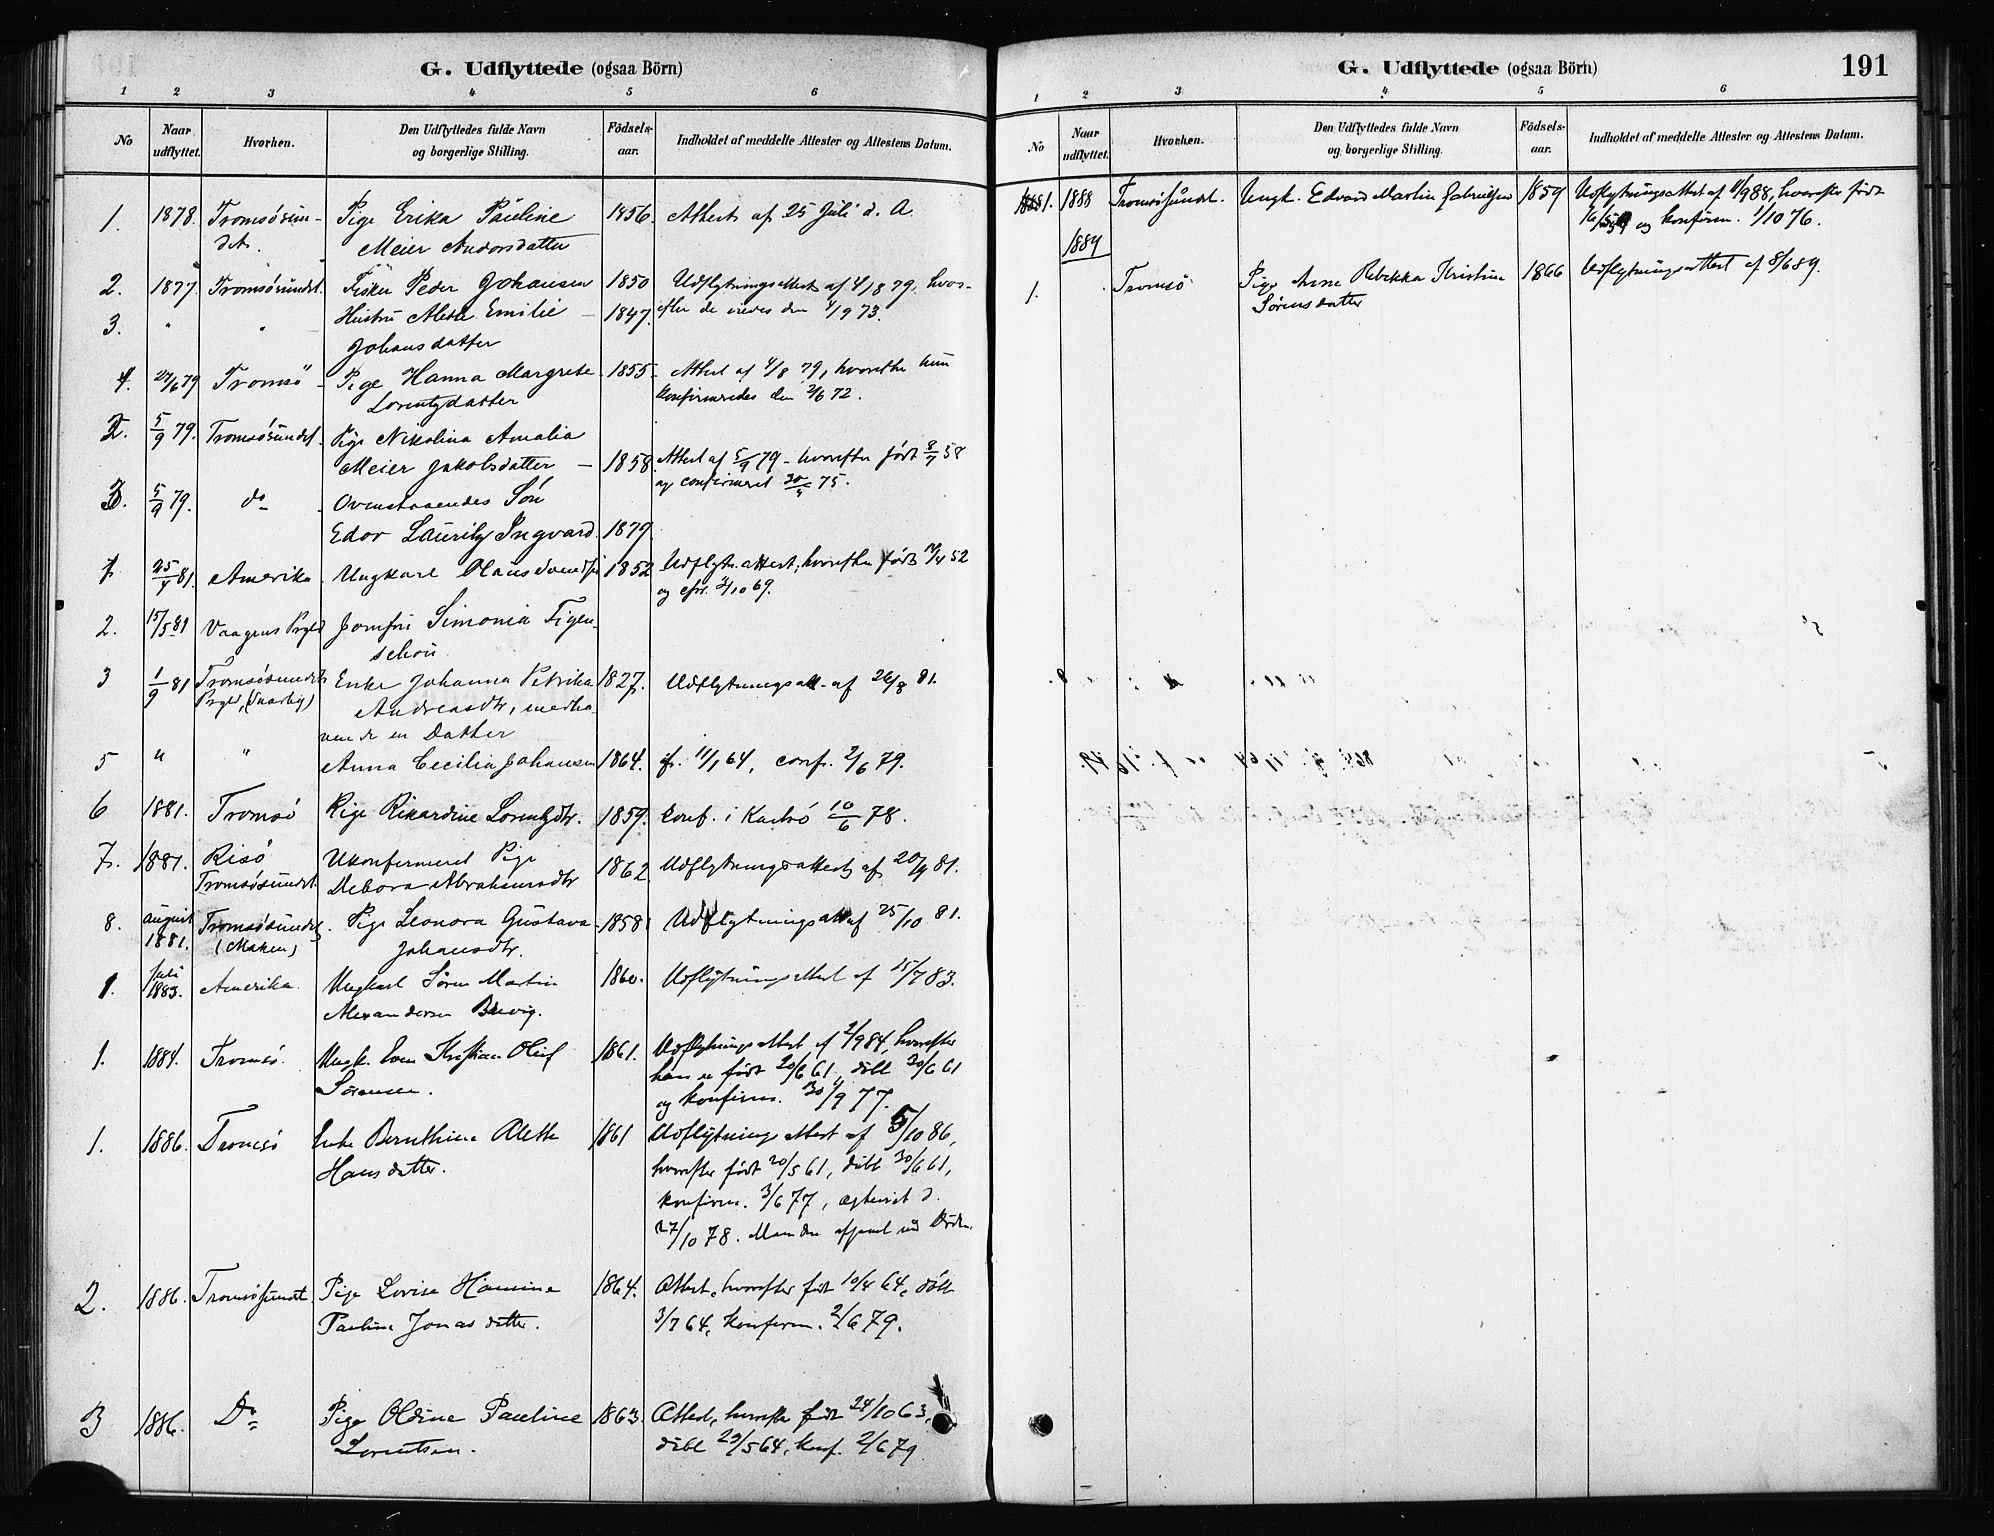 G. Udflyttede (ogsaa Börn)
1 2 3 4 5 6
No
Naar udflyttet.
Hvorhen.
Den Udflyttedes fulde Navn og borgerlige Stilling.
Födsels-aar.
Indholdet af meddelte Attester og Attestens Datum.
1. 1878. Tromsösun- Pige Erika Pauline 1856. Attest af 25 Juli d. A.
det. Meier Andorsdatter
2. 1877 Tromsösundet. Fisker Peder Johansen 1850 Udflytningsattest af 4/8 79, hvor-
3. " " Hustru Alette Emilie 1847. efter de viedes den 4/9 73.
Johansdatter
4. 24/6 79 Tromsö Pige Hanna Margrete 1855 Attest af 4/8 79, hvorefter hun
Lorentzdatter konfirmeredes den 2/6 72.
2. 5/9 79. Tromsösundet. Pige Nikolina Amalia
Meier Jakobsdatter 1858. Attest af 5/9 79 - hvorefter født 8/7 58
og confirmeret 30/5 75.
3. 5/9 79. do Ovenstaaendes Sön
Edor Lauritz Ingvard. 1879.
1 25/4 81. Amerika Ungkarl Hans 1852 Udflytn.attest, hvorefter født 1/4 52
og cfr. 3/10 69.
2. 15/5 81 Vaagens Prgld Jomfru Simonia Figen-
schou.
3 1/9 81 Tromsösundets Enke Johanna Petrika 1827. Udflytningsatt. af 26/8 81.
Prgld, Andreasdtr, medha-
vende en Datter
5 " " Anna Cecilia Johansen 1864. f. 11/1 64, conf. 2/6 79.
6 1881. Tromsö Pige Rikardine Lorentzdtr. 1859. Conf. i Karlsö 10/6 78.
7. 1881. Risö Ukonfirmeret Pige
Tromsösundet. Debora Abrahamsdtr 1862. Udflytningsattest af 20/9 81.
8. August Tromsösundet Pige Leonora Gustava 1858 Udflytningsatt af 25/10 81.
1881. (Maken) Johansdtr.
1. Juli 1883. Amerika Ungkarl Sören Martin 1860. Udflytningsattest af 15/7 83.
Alexandersen Brevig.
1. 1884. Tromsö. Ungk. Kristian Oluf 1861. Udflytningsattest af 2/9 84, hvorefter
Sörensen. han er født 20/6 61, döbt 30/6 61
og konfirm. 30/9 77.
1. 1886. Tromsö Enke Bernthine Alette 1861 Udflytningsattest af 5/10 86,
Hansdatter. hvorefter født 20/5 61, döbt 30/6 61,
konfirm. 3/6 77, ægteviet d.
27/10 78. Manden afgaaet ved Döden.
2. 1886. Tromsösundet. Pige Lovise Hamine 1864. Attest, hvorefter født 10/4 64, döbt
Pauline Jonasdatter. 3/7 64, konfirm. 2/6 79.
3 1886. Do Pige Oldine Pauline 1863. Attest, hvorefter født 24/10 63,
Lorentsen. döbt 29/5 64, konf. 2/6 79
G. Udflyttede (ogsaa Börn) 191
1 2 3 4 5 6
No
Naar udflyttet.
Hvorhen.
Den Udflyttedes fulde Navn og borgerlige Stilling.
Födsels-aar.
Indholdet af meddelte Attester og Attestens Datum.
1. 1888 Tromsösundet. Ungk. Edvard Martin Gabrielsen 1859 Udflytningsattest af 11/9 88, hvorefter født
og konfirm. 1/10 76.
1889
1. Tromsö Pige Anne Rebekka Kristine 1866 Udflytningsattest af 8/6 89.
Sörensdatter